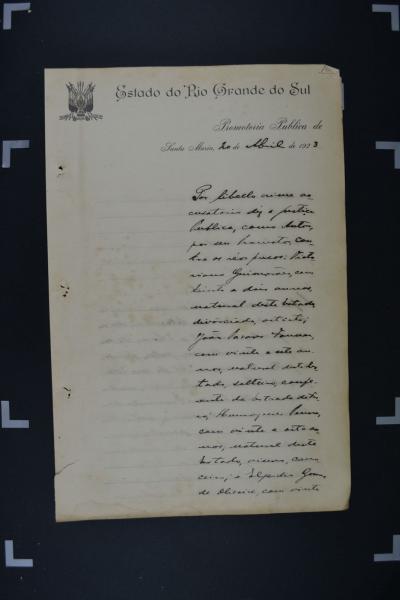 Estado do Rio Grande do Sul
Promotoria Publica de
Santa Maria, 20 de Abril de 1923.
Por libello crime ac-
cusatorio diz a Justiça
Publica, como Autor,
por seu Promotor, con-
tra os réos presos:
Guimarães, com
trinta e dois annos,
natural deste Estado,
divorciado, artista;
João
com vinte e sete an-
nos, natural deste Es-
tado, solteiro,
da estrada de fer-
ro;
com vinte e oito an-
nos, natural deste
Estado, viuvo,
e Elpidio Gomes
de Oliveira, com vinte